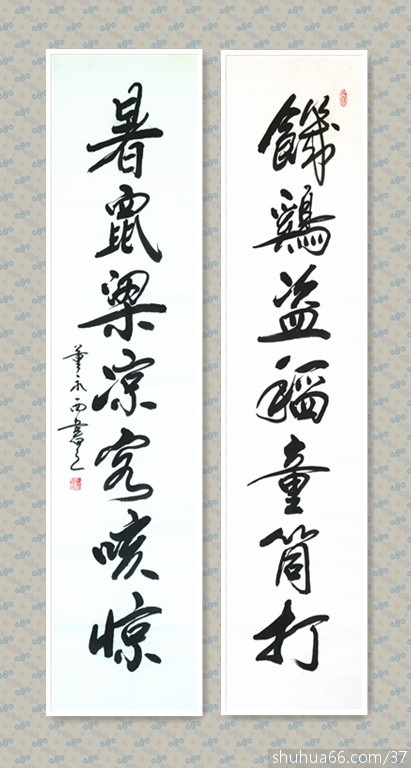 饑鷄盗稻童筒打
暑鼠梁凉客咳惊
董永西書之
shuhua66.com/37